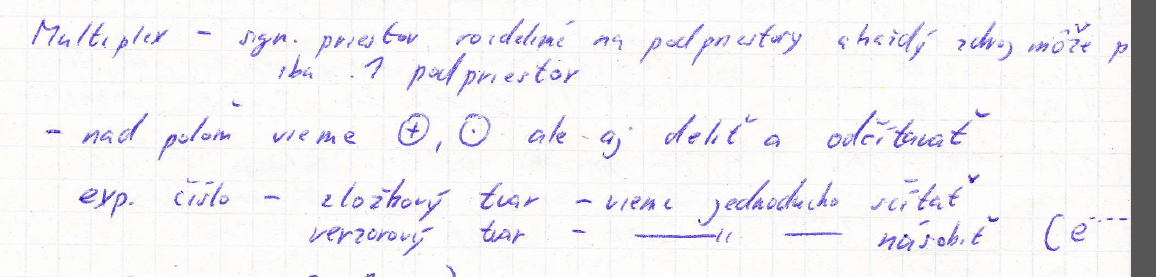 Multiplex - sign. priestor rozdelíme na podpriestory a každý zdroj môže p
iba 1 podpriestor
- nad poľom vieme ⊕, ⊙ ale aj deliť a odčítavať
exp. číslo - zložkový tvar - vieme jednoducho sčítať
verzorový tvar - —〃— násobiť (e